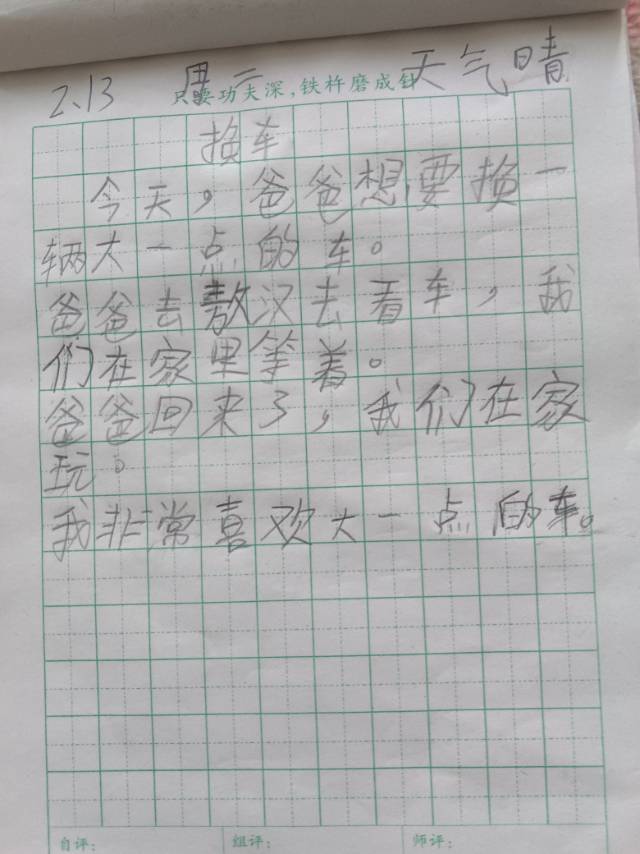 2.13 周二 天气晴
只要功夫深,铁杵磨成针
换车
今天，爸爸想要换一
辆大一点的车。
爸爸去敖汉去看车，我
们在家里等着。
爸爸回来了，我们在家
玩。
我非常喜欢大一点的车。
自评： 组评： 师评：